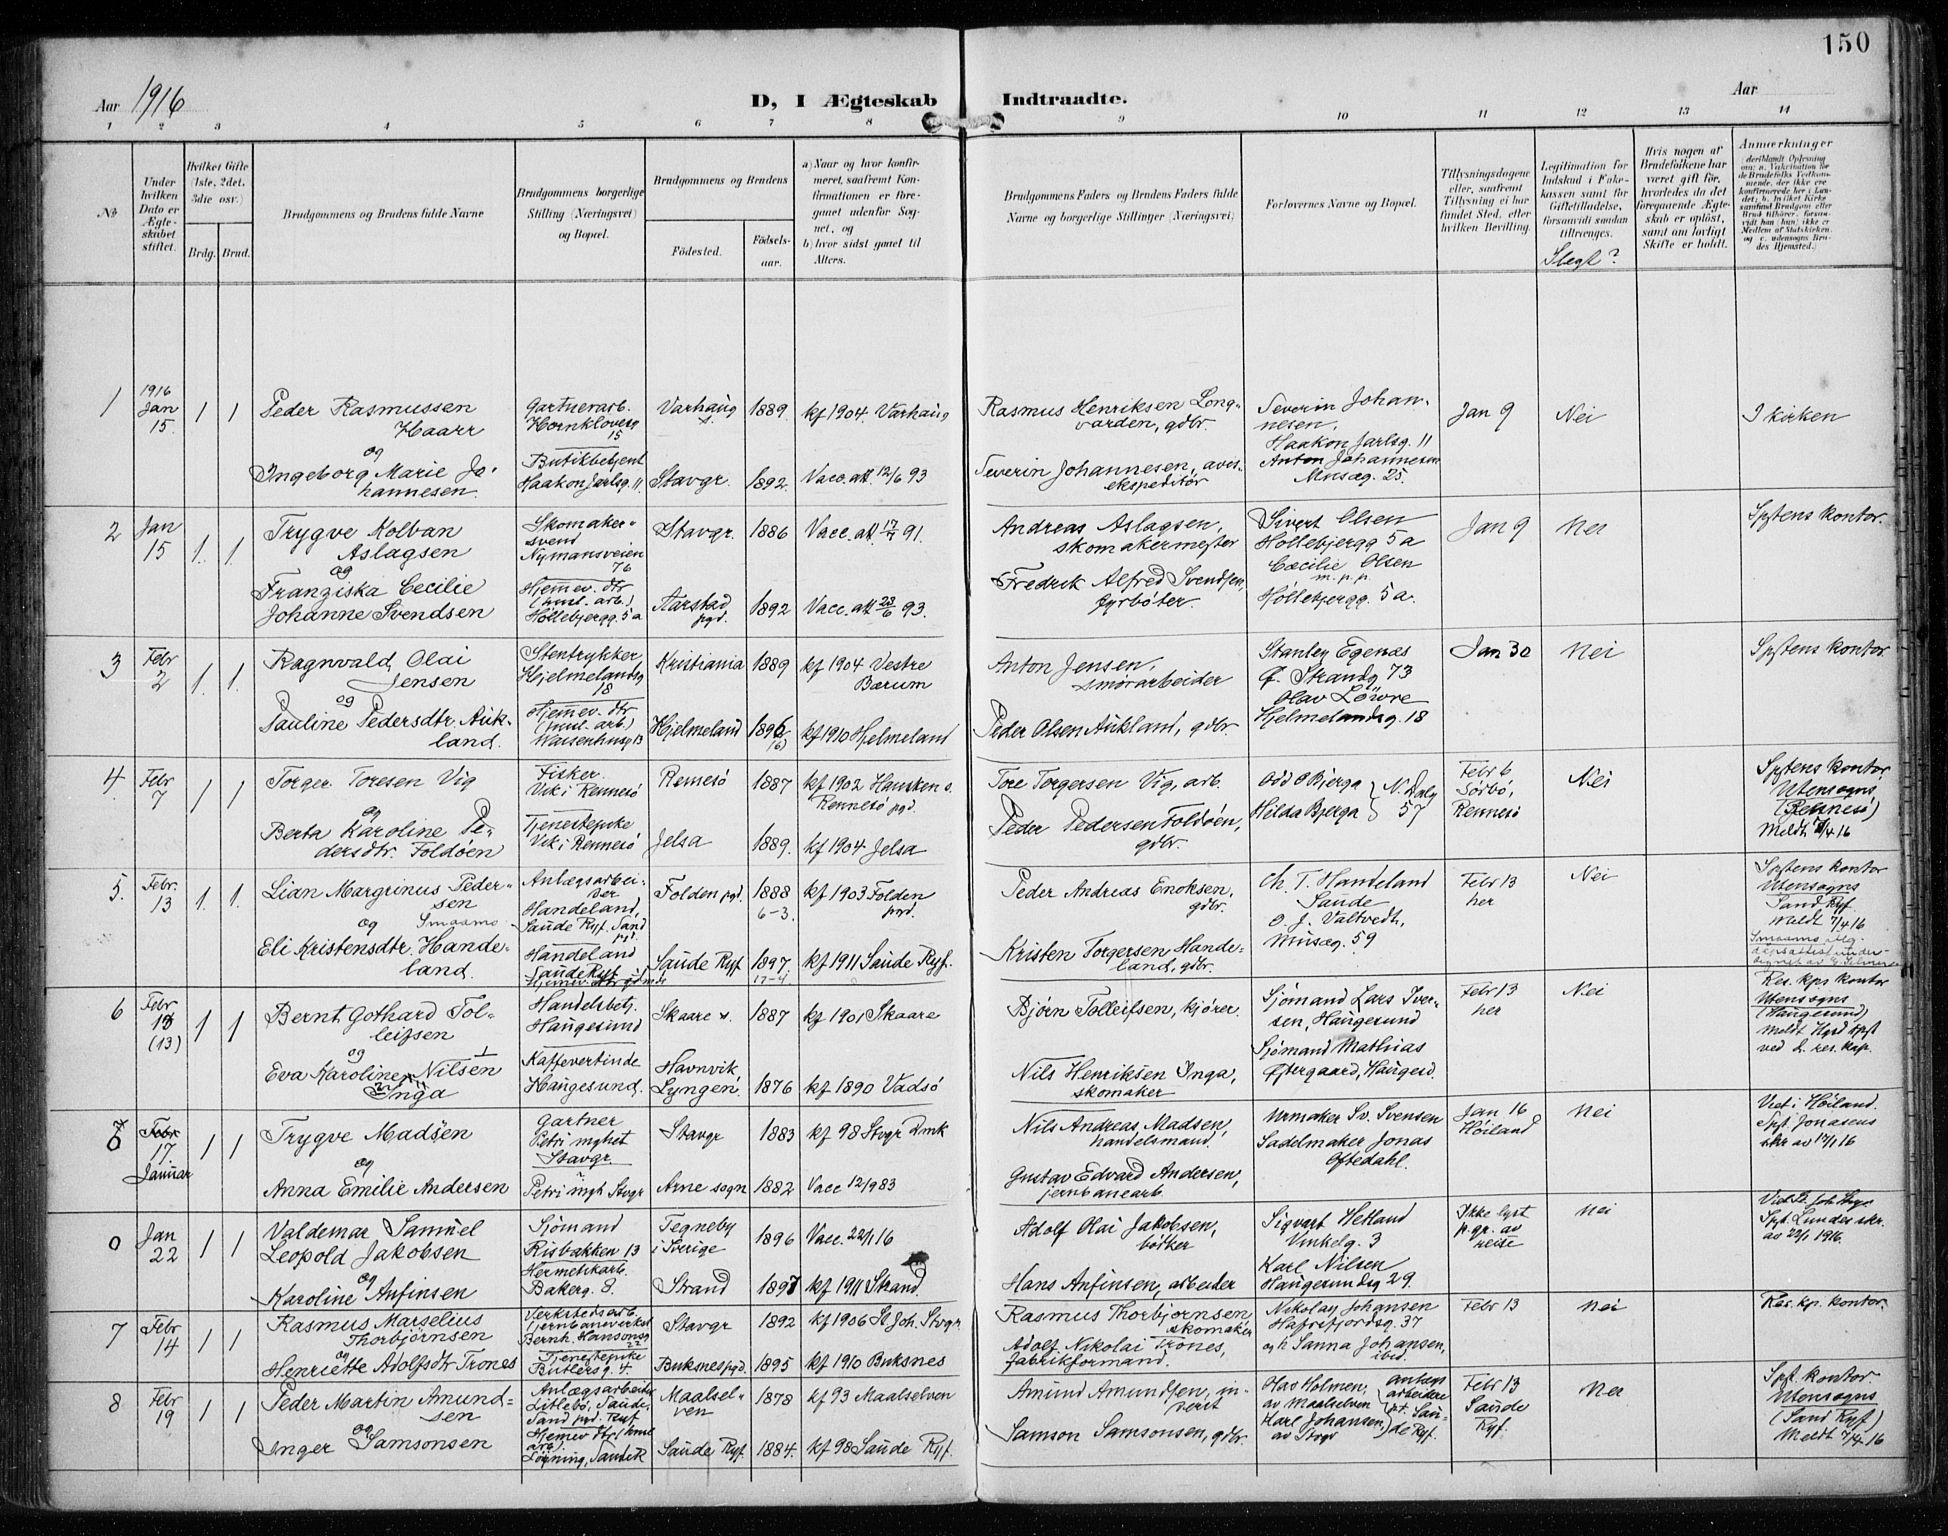 150
Aar 1916
D, I Ægteskab Indtraadte.
Aar
1 2 3 4 5 6 7 8 9 10 11 12 13 14
No
Under hvilken Dato er Ægteskabet stiftet.
Hvilket Gifte (1ste, 2det, 3die osv.)
Brdg. Brud.
Brudgommens og Brudens fulde Navne
Brudgommens borgerlige Stilling (Næringsvei) og Bopæl.
Brudgommens og Brudens
Födested.
Födsels-aar.
a) Naar og hvor konfirmeret, saafremt Konfirmationen er foregaaet udenfor Sognet, og
b) hvor sidst gaaet til Alters.
Brudgommens Faders og Brudens Faders fulde Navne og borgerlige Stillinger (Næringsvei)
Forlovernes Navne og Bopæl.
Tillysningsdagene eller, saafremt Tillysning ei har fundet Sted, efter hvilken Bevilling.
Legitimation for Indskud i Enkekassen samt for Giftetilladelse, forsaavidt saadan tiltrænges.
Slegt?
Hvis nogen af Brudefolkene har været gift før, hvorledes da det foregaaende Ægteskab er oplöst, samt om lovligt Skifte er holdt.
Anmerkninger
1
1916 Jan 15.
1 1
Peder Rasmussen Haarr
og
Ingeborg Marie Johannesen.
Gartnerarb. Hornklovesg 15
Butikbetjent Haakon Jarlsg. 11.
Varhaug 1889. kf 1904 Varhaug
Stavgr. 1892. Vacc. att. 12/6 93
Rasmus Henriksen Longvarden, gdbr.
Severin Johannesen, avisekspeditör
Severin Johannesen, Haakon Jarlsg. 11
Anton Johannesen Musæg. 25.
Jan 9
Nei
I kirken
2
Jan 15
1. 1.
Trygve Kolban Aslagsen
og
Franziska Cecilie Johanne Svendsen
Skomakersvend Nymansveien 76
Hjemmev. dtr (husl. arb.) Höllebjergg. 5a
Stavgr. 1886 Vacc. att. 17/7 91.
Aarstad pgd. 1892 Vacc. att 23/6 93.
Andreas Aslagsen, skomakermester
Fredrik Alfred Svendsen, fyrböter.
Sivert Olsen Höllebjergg 5a
Cæcilie Olsen m.p.p. Höllebjergg. 5a.
Jan 9
Nei
Spstens kontor.
3
Febr 2
1. 1.
Ragnvald Olai Jensen
og
Pauline Pedersdtr Aukland.
Stentrykker Hjelmelandsg 18
Hjemmev. dtr (husl. arb) Waisenhusg 13
Kristiania 1889 kf 1904 Vestre Bærum
Hjelmeland 1896 (6) kf 1910 Hjelmeland
Anton Jensen, smörarbeider
Peder Olsen Aukland, gdbr.
Stanley Egenæs Ø. Strandg 73
Olav Löwre Hjelmelandsg. 18
Jan 30
Nei
Spstens kontor
4
Febr 7
1 1
Torger Toresen Vig
og
Berta Karoline Pedersdtr. Foldöen
Fisker. Vik i Rennesö
Tjenestepike Vik i Rennesö
Rennesö 1887 kf 1902 Hausken s. Rennesö pgd.
Jelsa 1889. kf 1904 Jelsa
Tore Torgersen Vig, arb.
Peder Pedersen Foldöen, gdbr.
Odd O Bjerga
Hilda Bjerga } N. Dalg 57
Febr 6 Sörbö, Rennesö
Nei
Spstens kontor Utensogns (Rennesö) Meldt 7/4 16
5.
Febr. 13
1. 1.
Lian Margrinus Pedersen
og Smaamo
Eli Kristensdtr. Handeland.
Anlægsarbeider Handeland, Saude Ryf. Sand
Handeland Saude Ryf
Folden pgd. 1888 6-3. kf 1903 Folden pgd.
Saude Ryf 1897 17-4 kf 1911 Saude Ryf.
Peder Andreas Enoksen, gdbr.
Kristen Torgersen Handeland, gdbr.
Ch. T. Handeland Saude
O. J. Valtvedt, Musæg. 59
Febr 13 her
Nei
Spstens kontor Utensogns Sand Ryf Meldt 7/4 16
6
Febr 13 (13)
1 1
Bernt Gothard Tolleifsen
og
Eva Karoline Nilsen Inga
Handelsbetj. Haugesund
Kaffevertinde Haugesund.
Skaare s. 1887 kf 1901 Skaare
Havnvik, Lyngen 1876 kf 1890 Vadsö
Björn Tolleifsen, kjörer.
Nils Henriksen Inga, skomaker
Sjömand Lars Iversen, Haugesund
Sjömand Mathias Østergaard, Haugesd.
Febr 13 her
Nei
Res. kps kontor Utensogns (Haugesund) Meldt Hgsd spst ved d. res. kap.
17 Januar
1 1
Trygve Madsen
og
Anna Emilie Andersen
Gartner Petri mghet Stavgr.
Petri mgh Stvgr
Stavgr 1883 kf 98 Stvgr Dmk
Arne sogn 1882 Vacc 12/9 83
Nils Andreas Madsen, handelsmand.
Gustav Edvard Andersen, jernbanearb.
Urmaker Sv. Svensen
Sadelmaker Jonas Oftedahl.
Jan 16 Höiland
Nei
Viet i Höiland. Spst. Jonasens skr av 17/1 16
0
Jan 22
1 1
Valdemar Samuel Leopold Jakobsen
og
Karoline Anfinsen
Sjömand Risbakken 13
Hermetikarb. Bakerg. 8.
Tegneby i Sverige 1896 Vacc. 22/1 16
Strand 1897 kf 1911 Strand.
Adolf Olai Jakobsen, bötker
Hans Anfinsen, arbeider
Sigvart Hetland Vinkelg. 3
Karl Nilsen Haugesundsg 29.
Ikke lyst p. gr. av reise
Nei
Viet St. Joh. Stvgr. Spst. Lundes skr. av 22/1 1916.
7
Febr 14
1 1
Rasmus Marselius Thorbjörnsen
og
Henriette Adolfsdtr Trones
Verkstedsarb. (jernbaneverkst Bernh. Hansonsg 22
Tjenestepike Butlersg. 4.
Stavgr 1892 kf 1906 St. Joh. Stvgr.
Buksnes pgd. 1895 kf 1910 Buksnes
Rasmus Thorbjörnsen skomaker
Adolf Nikolai Trones, fabrikformand.
Nikolay Johansen Hafrsfjordsg. 37
og h. Sanna Johansen, ibid.
Febr 13
Nei
Res. kp. kontor.
8
Febr 19
1 1
Peder Martin Amundsen
og
Inger Samsonsen
Anlægsarbeider Litlebö, Saude, Sand pgd. Ryf
Hjemmev dtr (husl arb). Lögning, Saude R
Maalselven 1878 kf 93 Maalselven
Saude Ryf. 1884. kf 98 Saude Ryf.
Amund Amundsen, inderst
Samson Samsonsen, gdbr.
Olas Holmen, av Maalselven
Karl Johansen av Stvgr } anlægsarbeidere p.t. Saude Ryf.
Febr 13 Saude Ryf.
Nei
Spst. kontor Utensogns (Sand Ryf) Meldt 7/4 16